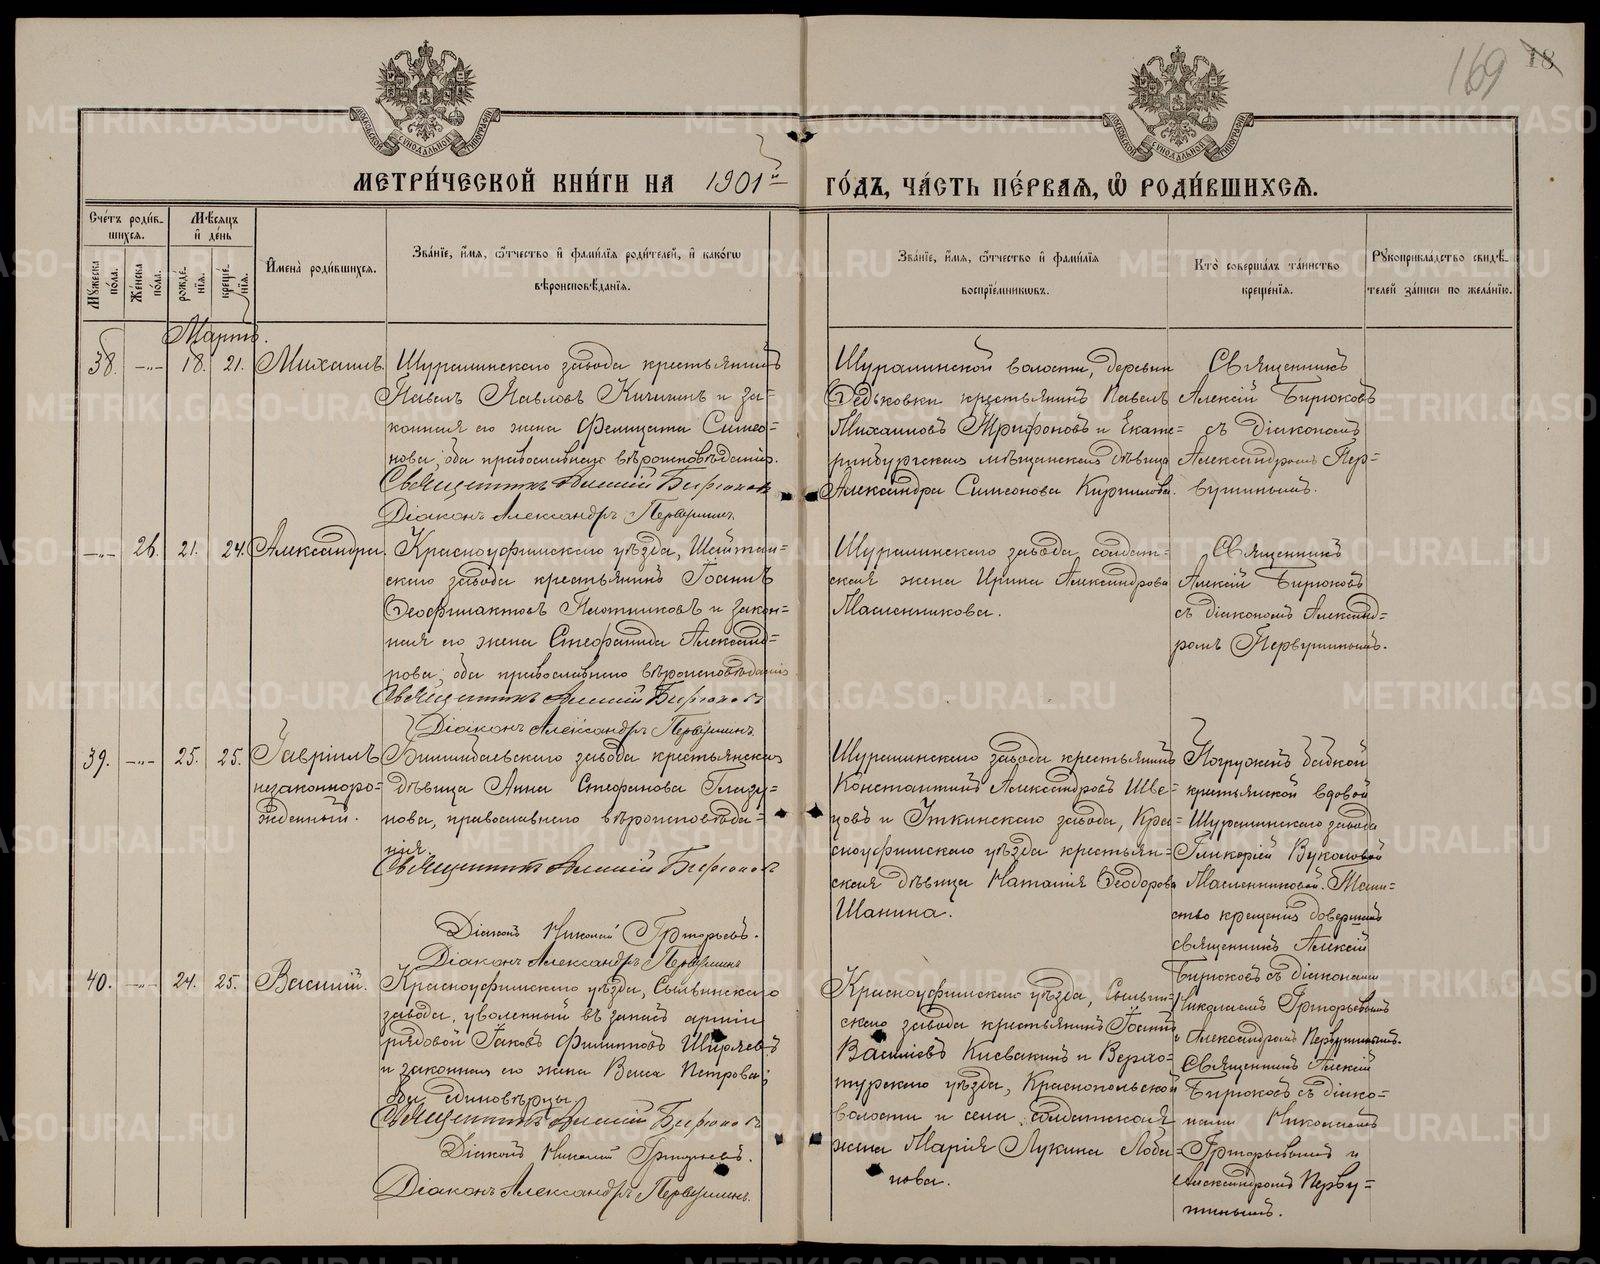 169
18
МЕТРИ́ЧЕСКОЙ КНИ́ГИ НА 1901й ГО́ДЪ, ЧА́СТЬ ПЕ́РВАѦ, Ѽ РОДИ́ВШИХСѦ.
Сче́тъ роди́в-
шихсѧ.
Мꙋ́жеска
по́ла.
Же́нска
по́ла.
Мѣ́сѧцъ
и҆ де́нь
рожде́-
нїѧ.
креще́-
нїѧ.
И҆мена̀ роди́вшихсѧ.
Зва́нїе, и҆́мѧ, ѻ҆́тчество и҆ фами́лїѧ роди́телей, и҆ како́гѡ
вѣроисповѣ́данїѧ.
Зва́нїе, и҆́мѧ, ѻ҆́тчество и҆ фами́лїѧ
воспрїе́мникѡвъ.
Кто̀ соверша́лъ та́инство
креще́нїѧ.
Рꙋкоприкла́дство свидѣ́-
телей за́писи по жела́нїю.
Мартъ.
38. -"- 18. 21. Михаилъ.
Шуралинскаго завода крестьянинъ
Павелъ Павловъ Кичигинъ и за-
конная его жена Фелицата Симео-
нова; оба православнаго вѣроисповѣданія.
Священникъ Алексій Бирюковъ
Діаконъ Александръ Первушинъ.
Шуралинской волости, деревни
Ѳедьковки крестьянинъ Павелъ
Михаиловъ Трифоновъ и Екате-
ринбургская мѣщанская дѣвица
Александра Симеонова Кирпилова.
Священникъ
Алексій Бирюковъ
съ діакономъ
Александромъ Пер-
вушинымъ.
-"- 26. 21. 24. Александра.
Красноуфимскаго уѣзда, Шайтан-
скаго завода крестьянинъ Іоаннъ
Ѳеофилактовъ Плотниковъ и закон-
ная его жена Стефанида Александ-
рова; оба православнаго вѣроисповѣданія
Священникъ Алексій Бирюковъ
Діаконъ Александръ Первушинъ
Шуралинскаго завода солдат-
ская жена Ирина Александрова
Масленникова.
Священникъ
Алексій Бирюковъ
съ діакономъ Александ-
ромъ Первушинымъ.
39. -"- 25. 25. Гавріилъ
незаконноро-
жденный.
Билимбаевскаго завода крестьянская
дѣвица Анна Стефанова Глазу-
нова, православнаго вѣроисповѣда-
нія.
Священникъ Алексій Бирюковъ
Діаконъ Николай Григорьевъ.
Діаконъ Александръ Первушинъ
Шуралинскаго завода крестьянинъ
Константинъ Александровъ Шве-
цовъ и Уткинскаго завода, Кра-
сноуфимскаго уѣзда крестьян-
ская дѣвица Наталія Ѳеодорова
Шанина.
Погружонъ бабкой
крестьянской вдовой
Шуралинскаго завода
Гликеріей Вуколовой
Масленниковой. Таин-
ство крещенія довершилъ
священникъ Алексій
Бирюковъ съ діаконами
Николаемъ Григорьевымъ
и Александромъ Первушинымъ.
40. -"- 24. 25. Василій.
Красноуфимскаго уѣзда, Сылвинскаго
завода, уволенный въ запасъ арміи
рядовой Іаковъ Филипповъ Ширяевъ
и законная его жена Васса Петрова;
оба единовѣрцы
Священникъ Алексій Бирюковъ
Діаконъ Николай Григорьевъ.
Діаконъ Александръ Первушинъ.
Красноуфимскаго уѣзда, Сылвин-
скаго завода крестьянинъ Іоаннъ
Василіевъ Кисвакинъ и Верхо-
турскаго уѣзда, Краснопольской
волости и села солдатская
жена Марія Лукина Лоба-
нова.
Священникъ Алексій
Бирюковъ съ діако-
нами Николаемъ
Григорьевымъ и
Александромъ Перву-
шинымъ.
METRIKI.GASO-URAL.RU